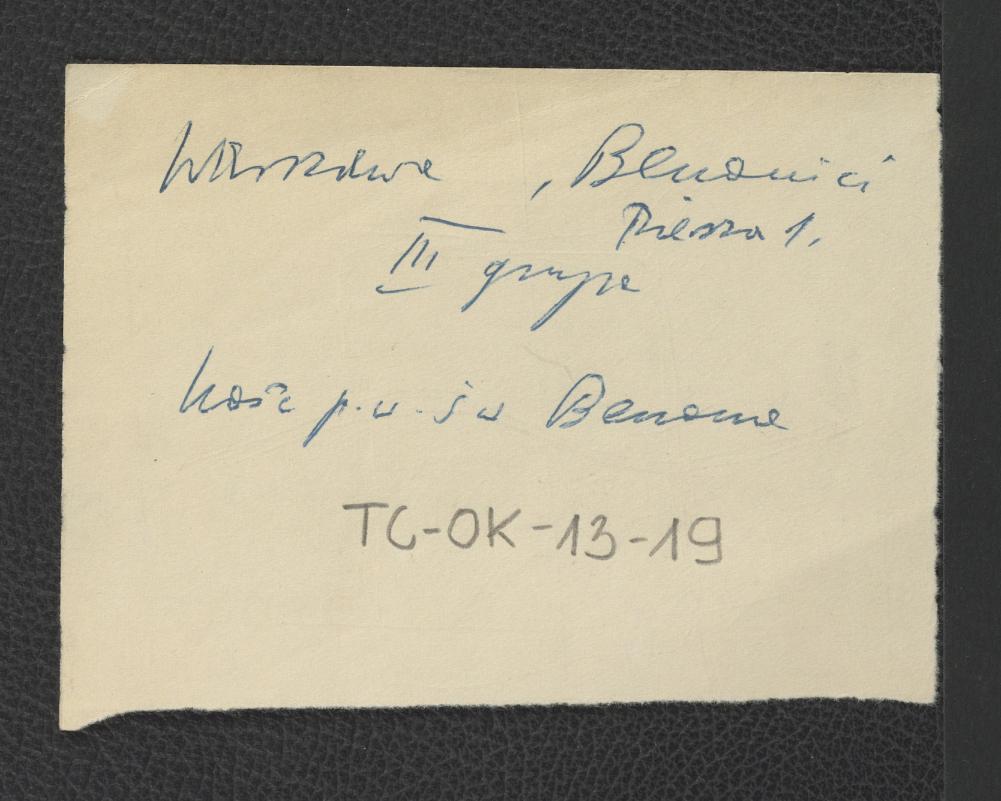 Warszawa , Benonici
Piesza 1.
III grupa
kość p.w. św Benona
TC-OK-13-19